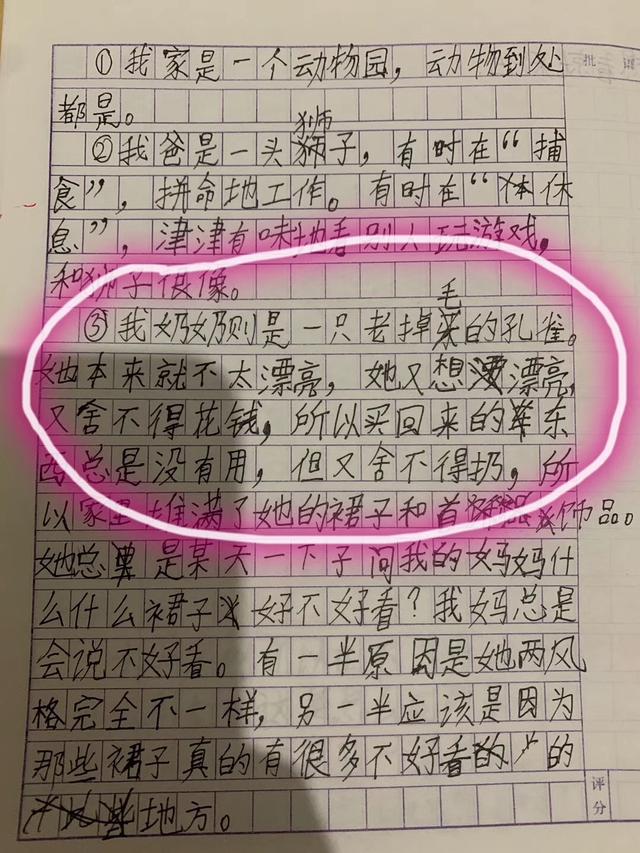 批
①我家是一个动物园，动物到处
都是。
狮
②我爸是一头狮子，有时在“捕
食”，拼命地工作。有时在“体休
息”，津津有味地看别人玩游戏，
和狮子很像。
毛
③我奶奶则是一只老掉的孔雀。
她本来就不太漂亮，她又想漂亮，
又舍不得花钱，所以买回来的东
西总是没有用，但又舍不得扔，所
以家里堆满了她的裙子和首饰品。
她总是某天一下子问我的妈妈什
么什么裙子好不好看？我妈总是
会说不好看。有一半原因是她两风
格完全不一样，另一半应该是因为
那些裙子真的有很多不好看的的
地方。
评
分